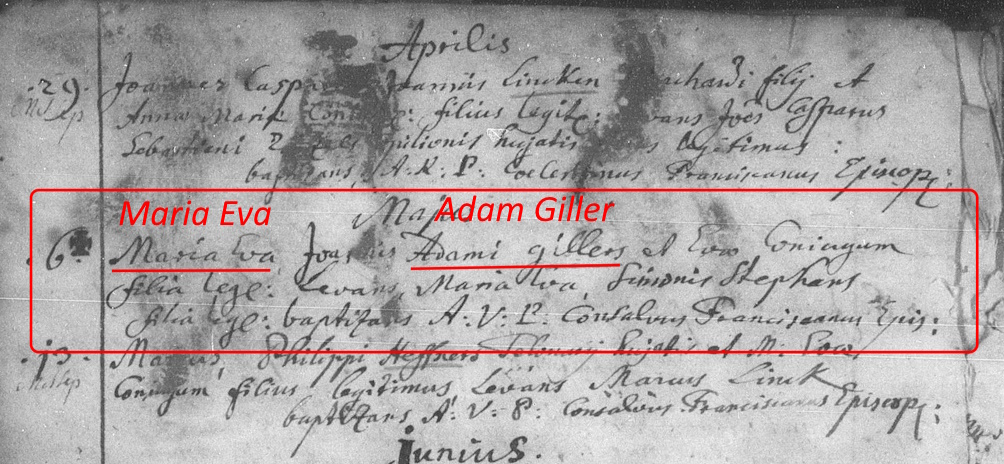 Aprilis
.29. Joannes Caspa Joannis Lincken filij et
Anna Maria filius legit: Joes Casparus
Sebastiani hujatis legitimus :
baptizans A. R. P. Coelestinus Franciscanus Episcop:
Maria Eva Adam Giller
.6. Maria Eva Joannis Adami gillers et Evae Coniugum
filia leg: Levans Maria Eva Simonis Stephans
filia leg: baptizans A: V: P: Consalvus Franciscanus Epis:
.13. Marcus Philippi Heffners hujatis et M: Evae
Coniugum filius legitimus Levans Marcus Linck
baptizans A: V: P: Consalvus Franciscanus Episcop:
Junius.